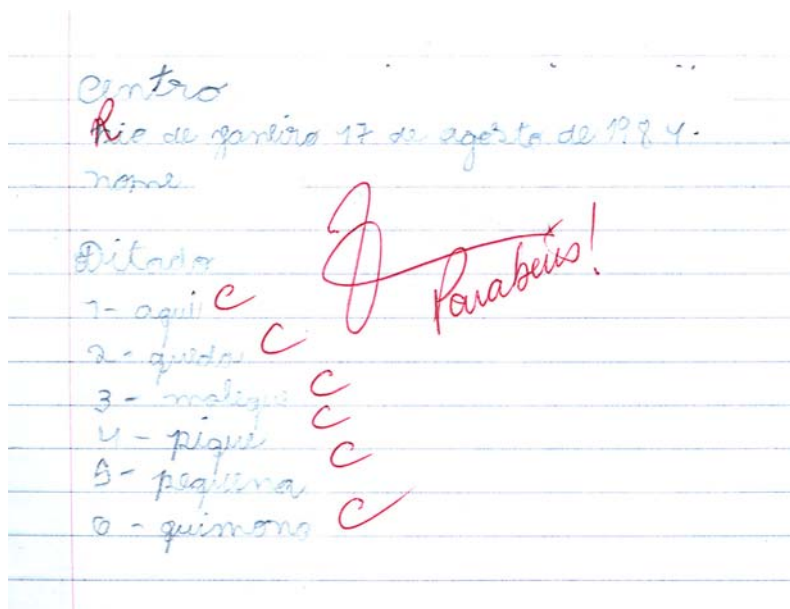 Centro
Rio de janeiro 17 de agosto de 1984.
nome
Ditado
Parabéns!
1- aqui C
2- queda C
3- moleque C
4- pique C
5- pequena C
6- quimono C